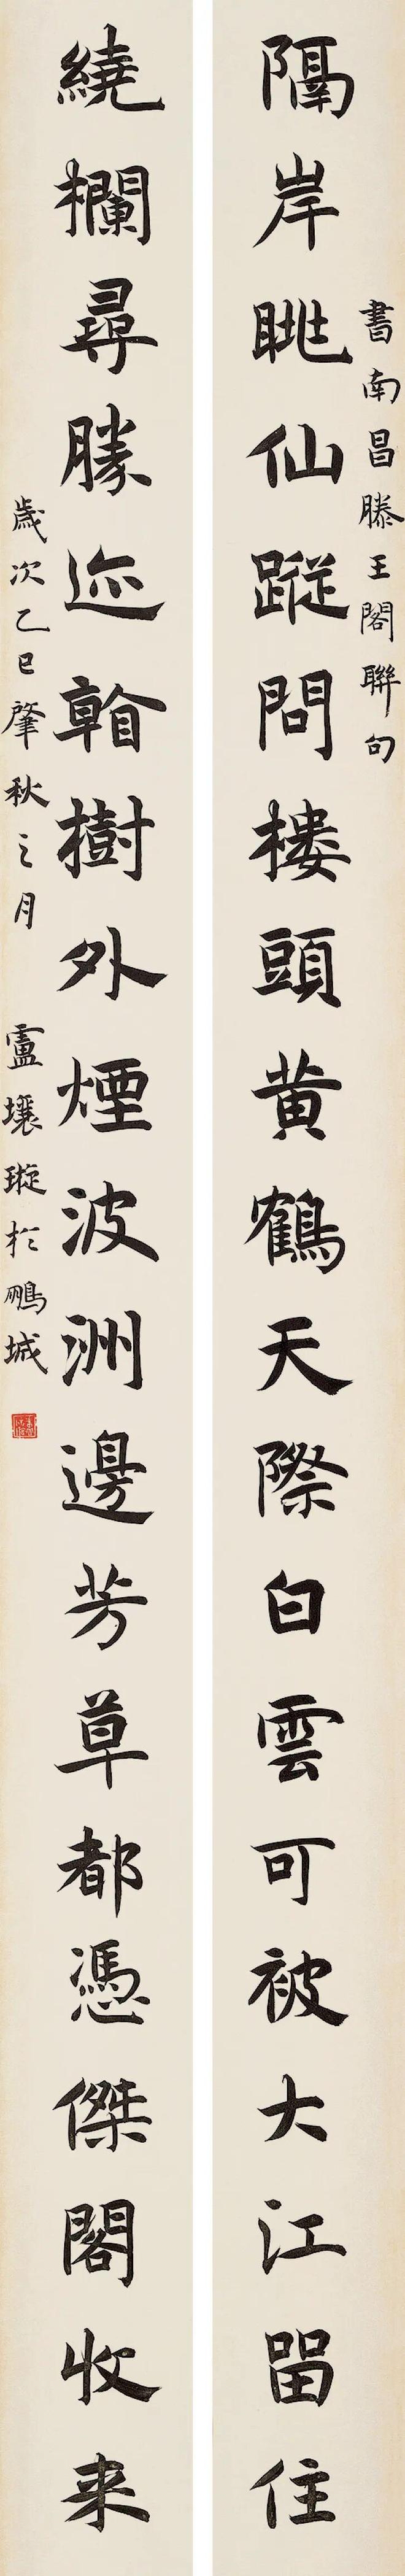 書南昌滕王閣聯句
隔岸眺仙蹤問樓頭黄鶴天際白雲可被大江留住
繞欄尋勝迹看樹外煙波洲邊芳草都憑傑閣收来
歲次乙巳肇秋之月 盧壤璇於鵬城